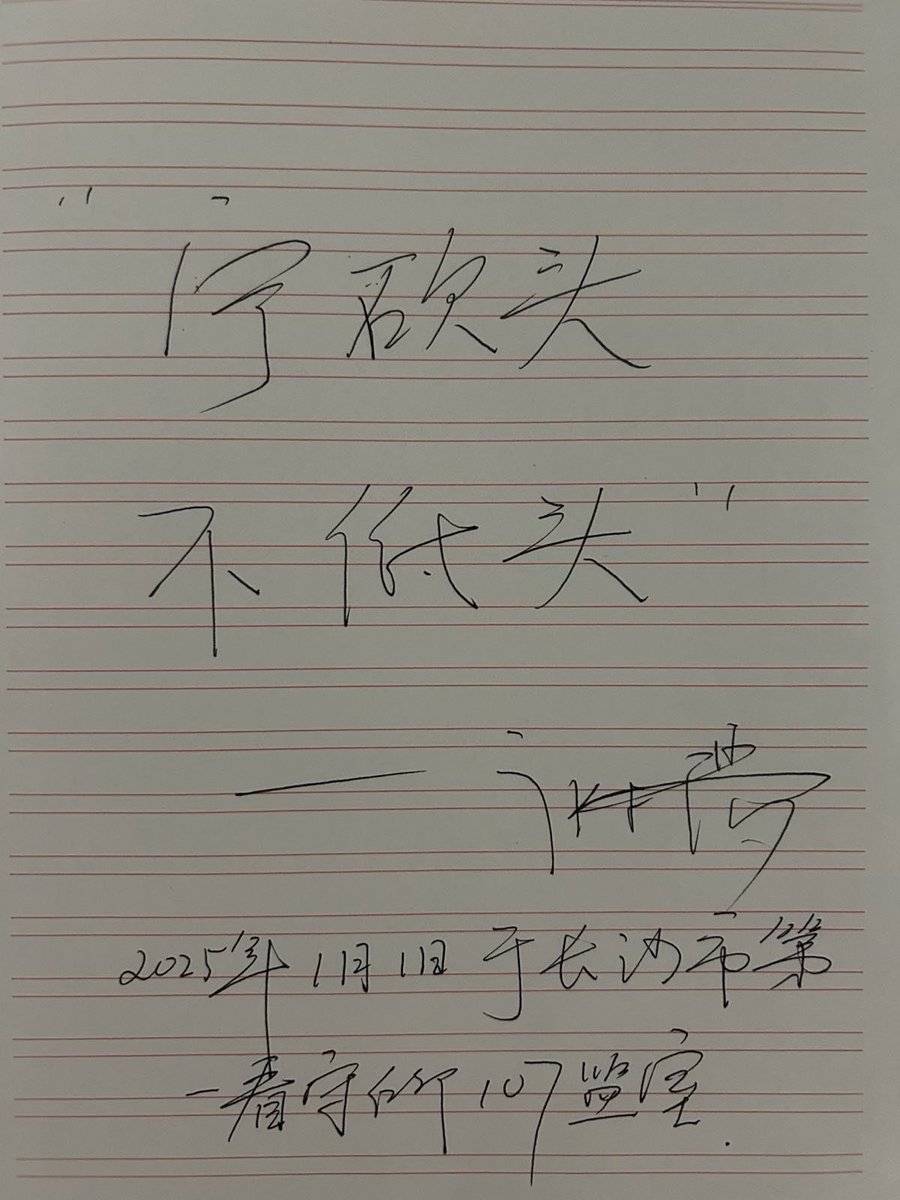 “宁砍头
不低头”
——
2025年1月1日于长沙市第
一看守所107监室.